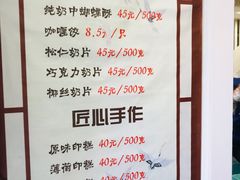 纯奶中蝴蝶酥 45元/500克
咖喱饺 8.5元/只
松仁奶片 45元/500克
巧克力奶片 45元/500克
椰丝奶片 45元/500克
匠心手作
原味印糕 40元/500克
薄荷印糕 40元/500克
40元/500克